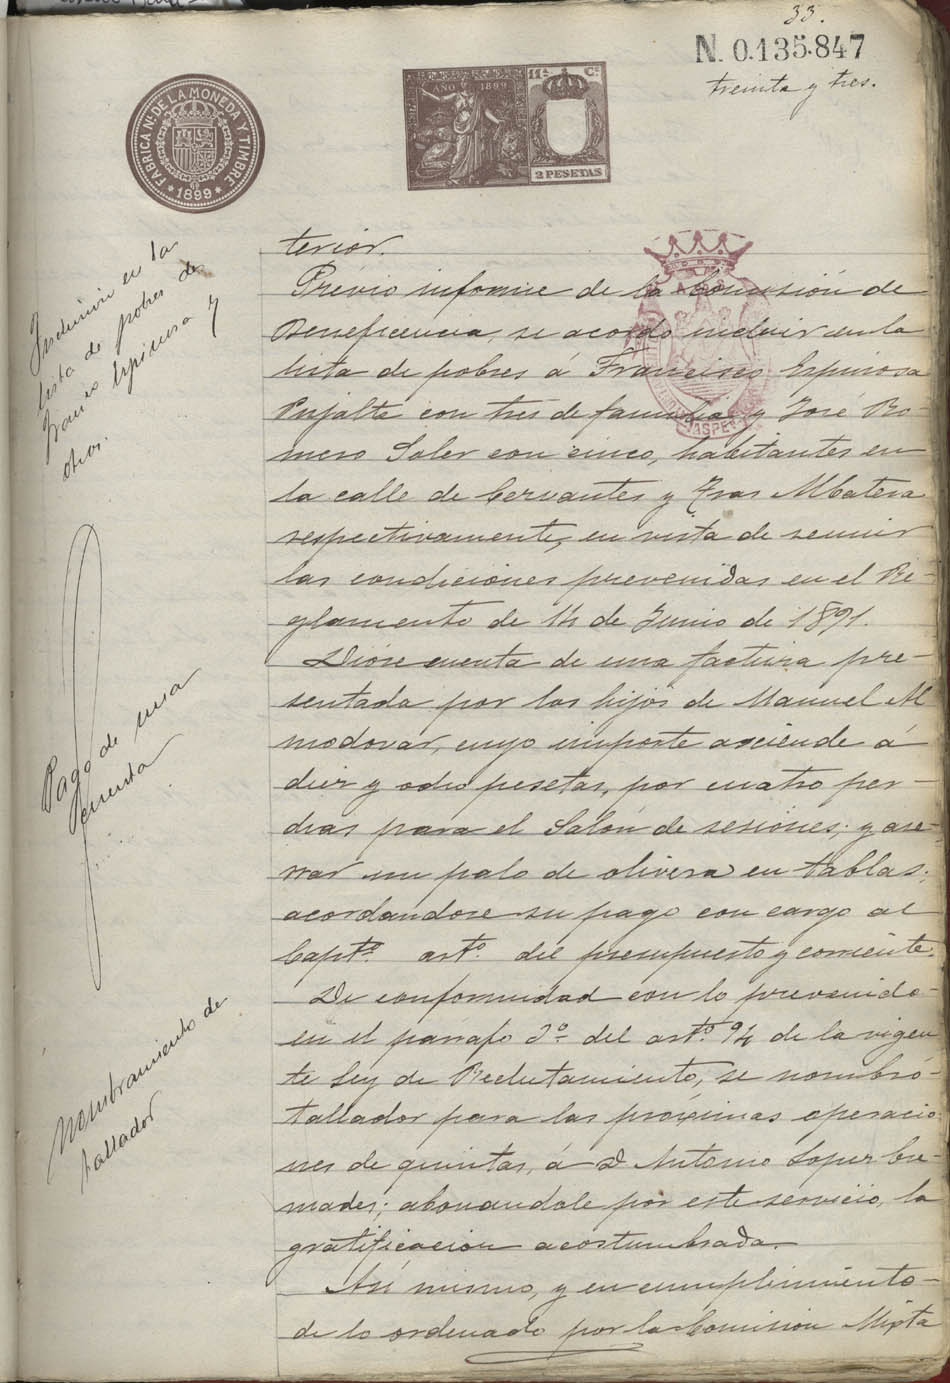 33.
N. 0.135.847
treinta y tres.
FABRICA NL. DE LA MONEDA Y TIMBRE
* 1899 *
AÑO 1899
11ª Cª
2 PESETAS
Incluir en la
lista de pobres de
Franco Espinosa y
otros.
terior.
Prévio informe de la Comisión de
Beneficencia, se acordó incluir en la
lista de pobres á Francisco Espinosa
Pujalte con tres de familia y José Ro-
mero Soler con cinco, habitantes en
la calle de Cervantes y Tras Mbatera
respectivamente, en vista de reunir
las condiciones prevenidas en el Re-
glamento de 14 de Junio de 1891.
Pago de una
cuenta
Dióse cuenta de una factura pre-
sentada por los hijos de Manuel Al
modovar, cuyo importe asciende á
diez y ocho pesetas, por cuatro per-
chas para el Salón de sesiones; y ase-
rrar un palo de olivera en tablas;
acordandose su pago con cargo al
Captº. artº. del presupuesto corriente.
Nombramiento de
tallador
De conformidad con lo prevenido
en el parrafo 2º del artº. 94 de la vigen
te Ley de Reclutamiento, se nombró
tallador para las próximas operacio
nes de quintas, á D Antonio Lopez Cre-
mades; abonandole por este servicio, la
gratificacion acostumbrada.
Asi mismo, y en cumplimiento
de lo ordenado por la Comision Mixta